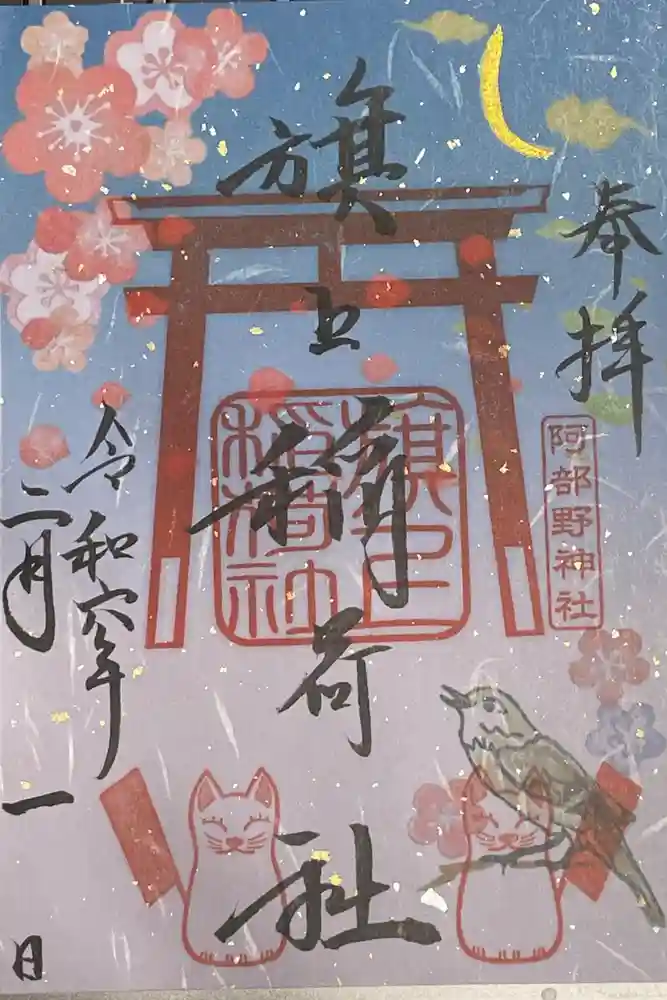 奉拝
阿部野神社
旗上稲荷社
旗上
稲荷神
令和六年
二月一日